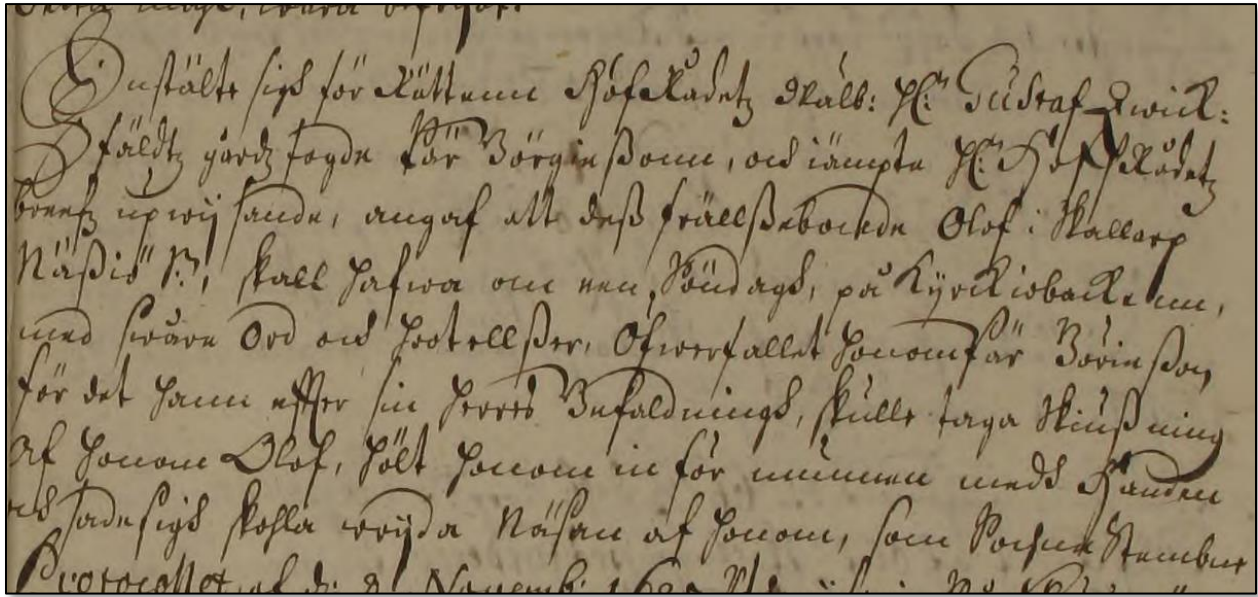 Instälte sigh för Rättenn HofRådetz Wälb: Hr: Gustaf Qwick:
fäldtz gårdz fogde Pär Börgießonn, och iämpte Hr: HoffRådetz
breefz upwijsande, angaf att deß frällßebonde Olof i Skallarp
Näßiö Sn, skall hafwa om een Söndagh, på Kyrckiobackenn,
med swåre Ord och hootellßer, Öfwerfallet honom Pär Börießon,
för det hann effter sin herres Befaldningh, skulle taga Skiußning
af honom Olof, hölt honom in för munnen medh Handen
och sade sigh skohla wrijda Näsan af honom, som Sochne Stembne
Protocollet af d: Novemb: